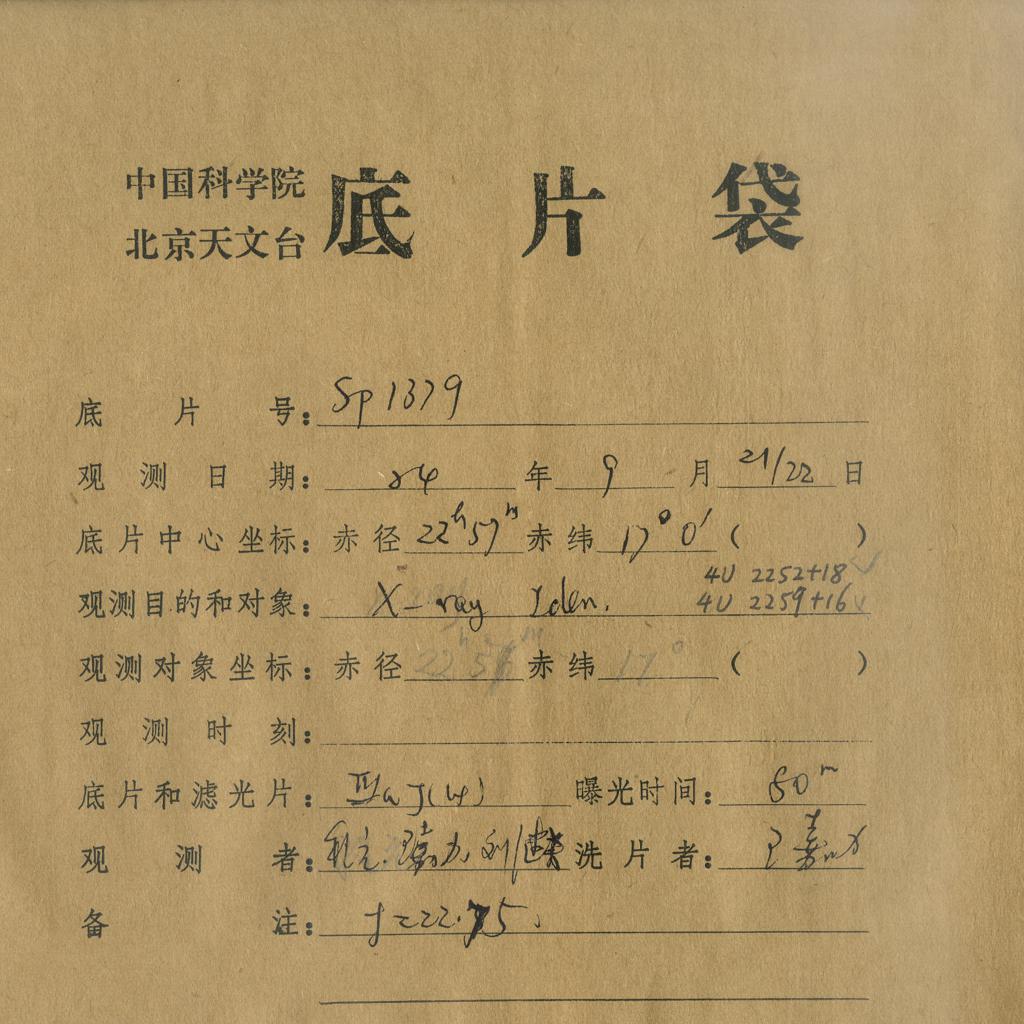 中国科学院
北京天文台
底片袋
底片号：Sp1379
观测日期：84年9月21/22日
底片中心坐标：赤径22h57m赤纬17°0′（ ）
4U 2252+18
观测目的和对象：X-ray Iden. 4U 2259+16
观测对象坐标：赤径22h 赤纬17°（ ）
观测时刻：
底片和滤光片：IIaJ(4) 曝光时间：50m
观测者： 洗片者：
备注：f=22.75